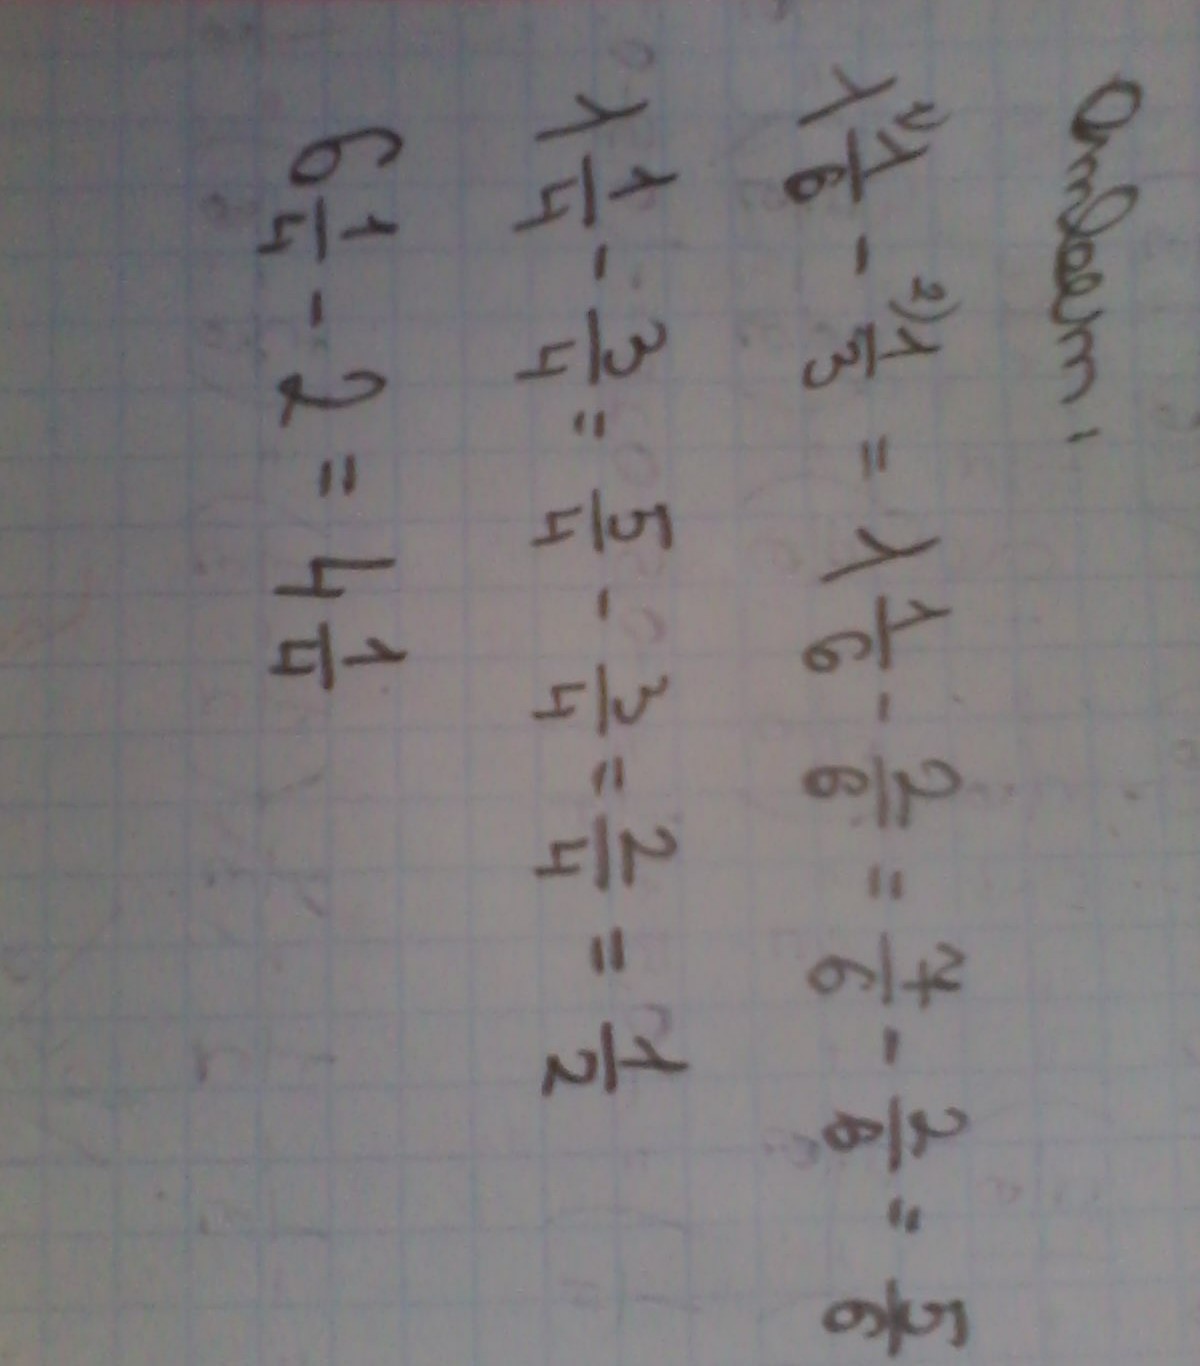 Ответ:
1 ¹⁾1/6 - ²⁾1/3 = 1 1/6 - 2/6 = 7/6 - 2/6 = 5/6
1 1/4 - 3/4 = 5/4 - 3/4 = 2/4 = 1/2
6 1/4 - 2 = 4 1/4